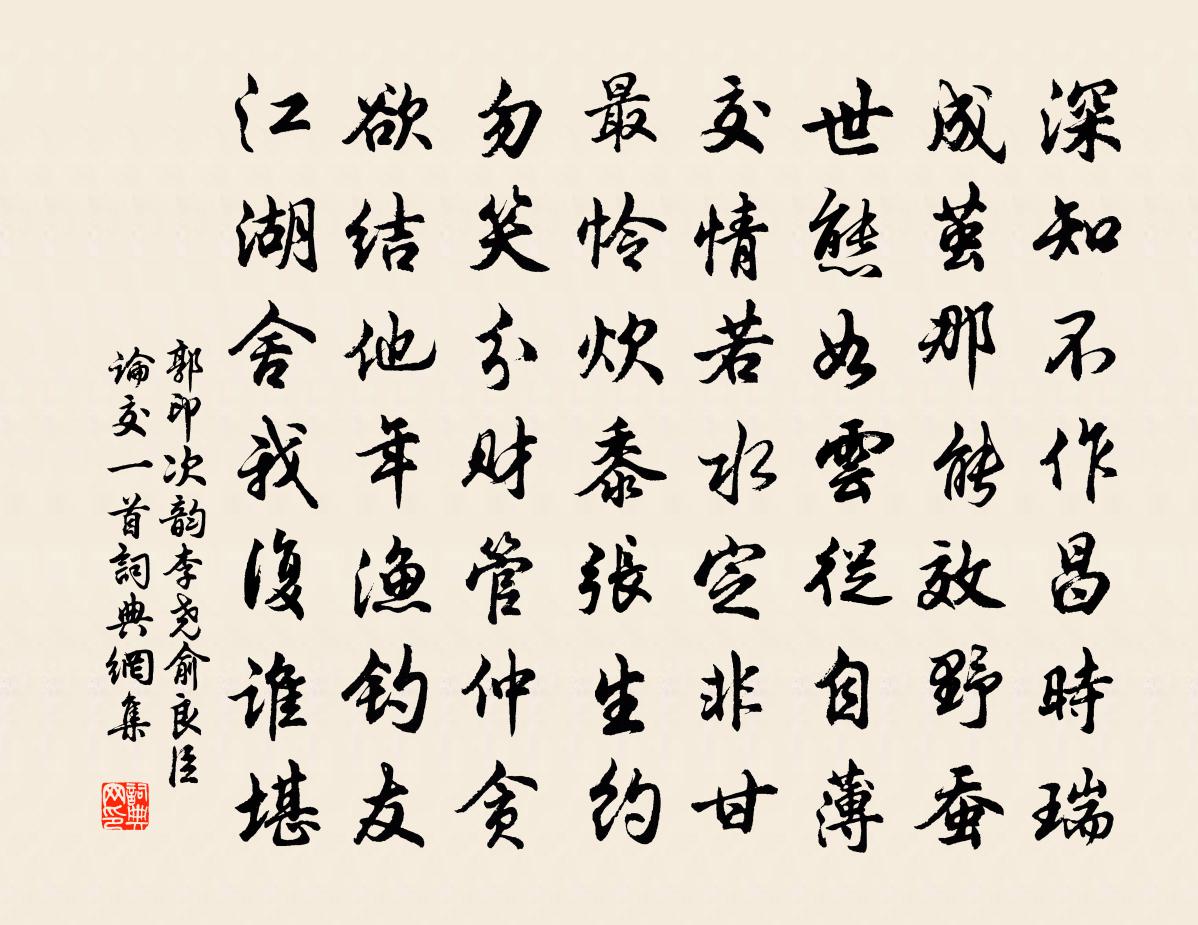 深知不作昌時瑞
成茧那能效野蚕
世態如雲從自薄
交情若水定非甘
最怜炊黍張生約
勿笑分财管仲贪
欲结他年渔钓友
江湖舍我復谁堪
郭印次韵李尧俞良臣
论交一首詞典網集
詞典
网印